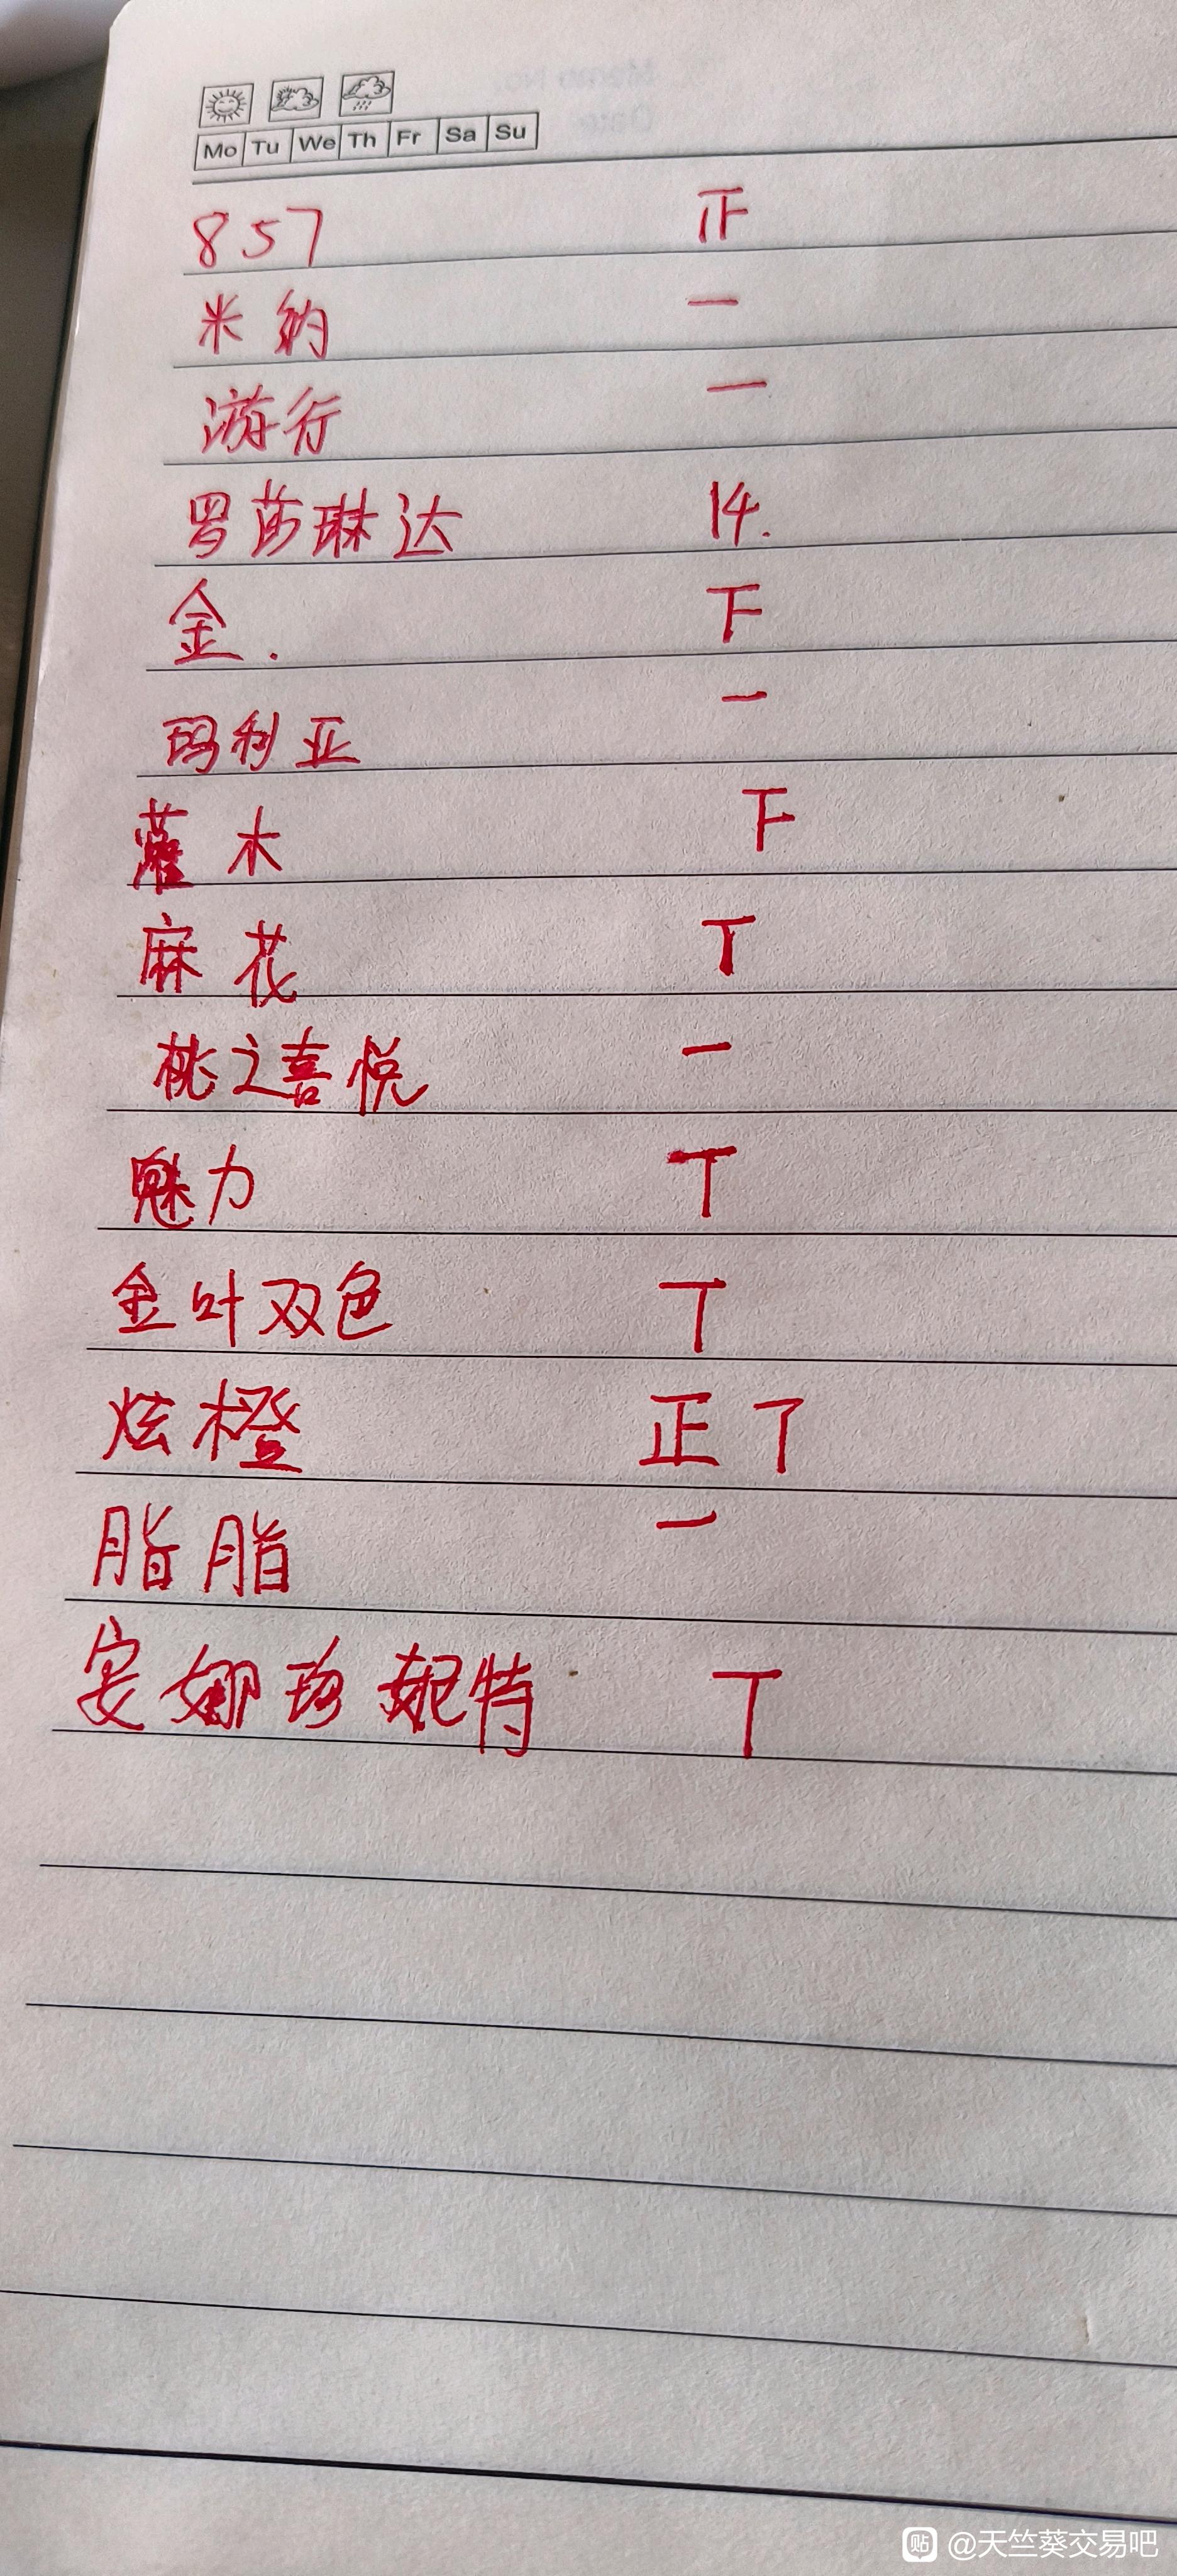 Mo Tu We Th Fr Sa Su
857 止
米纳 一
游行 一
罗莎琳达 14.
金. 下
玛利亚 一
灌木 下
麻花 丅
桃之喜悦 一
魅力 丅
金叶双色 丅
炫橙 正丅
脂脂 一
安娜玛妮特 丅
@天竺葵交易吧